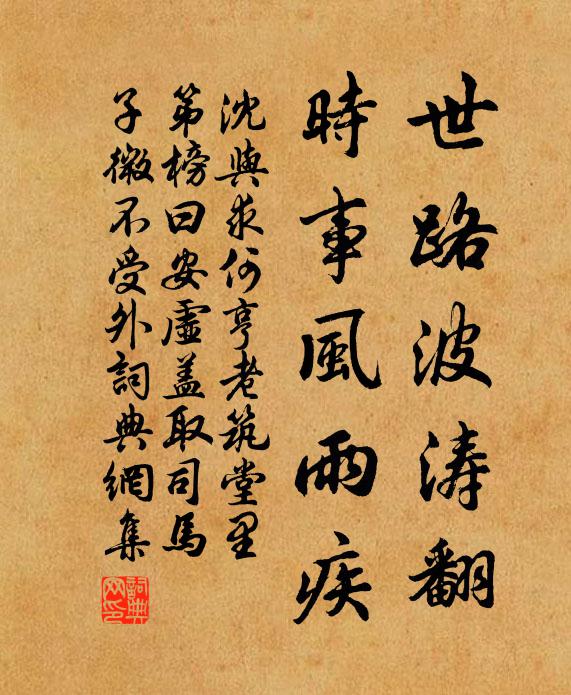 世路波涛翻
時事風雨疾
沈與求何亨老筑堂里
第榜曰安虛盖取司馬
子微不受外詞典網集
詞典
网印